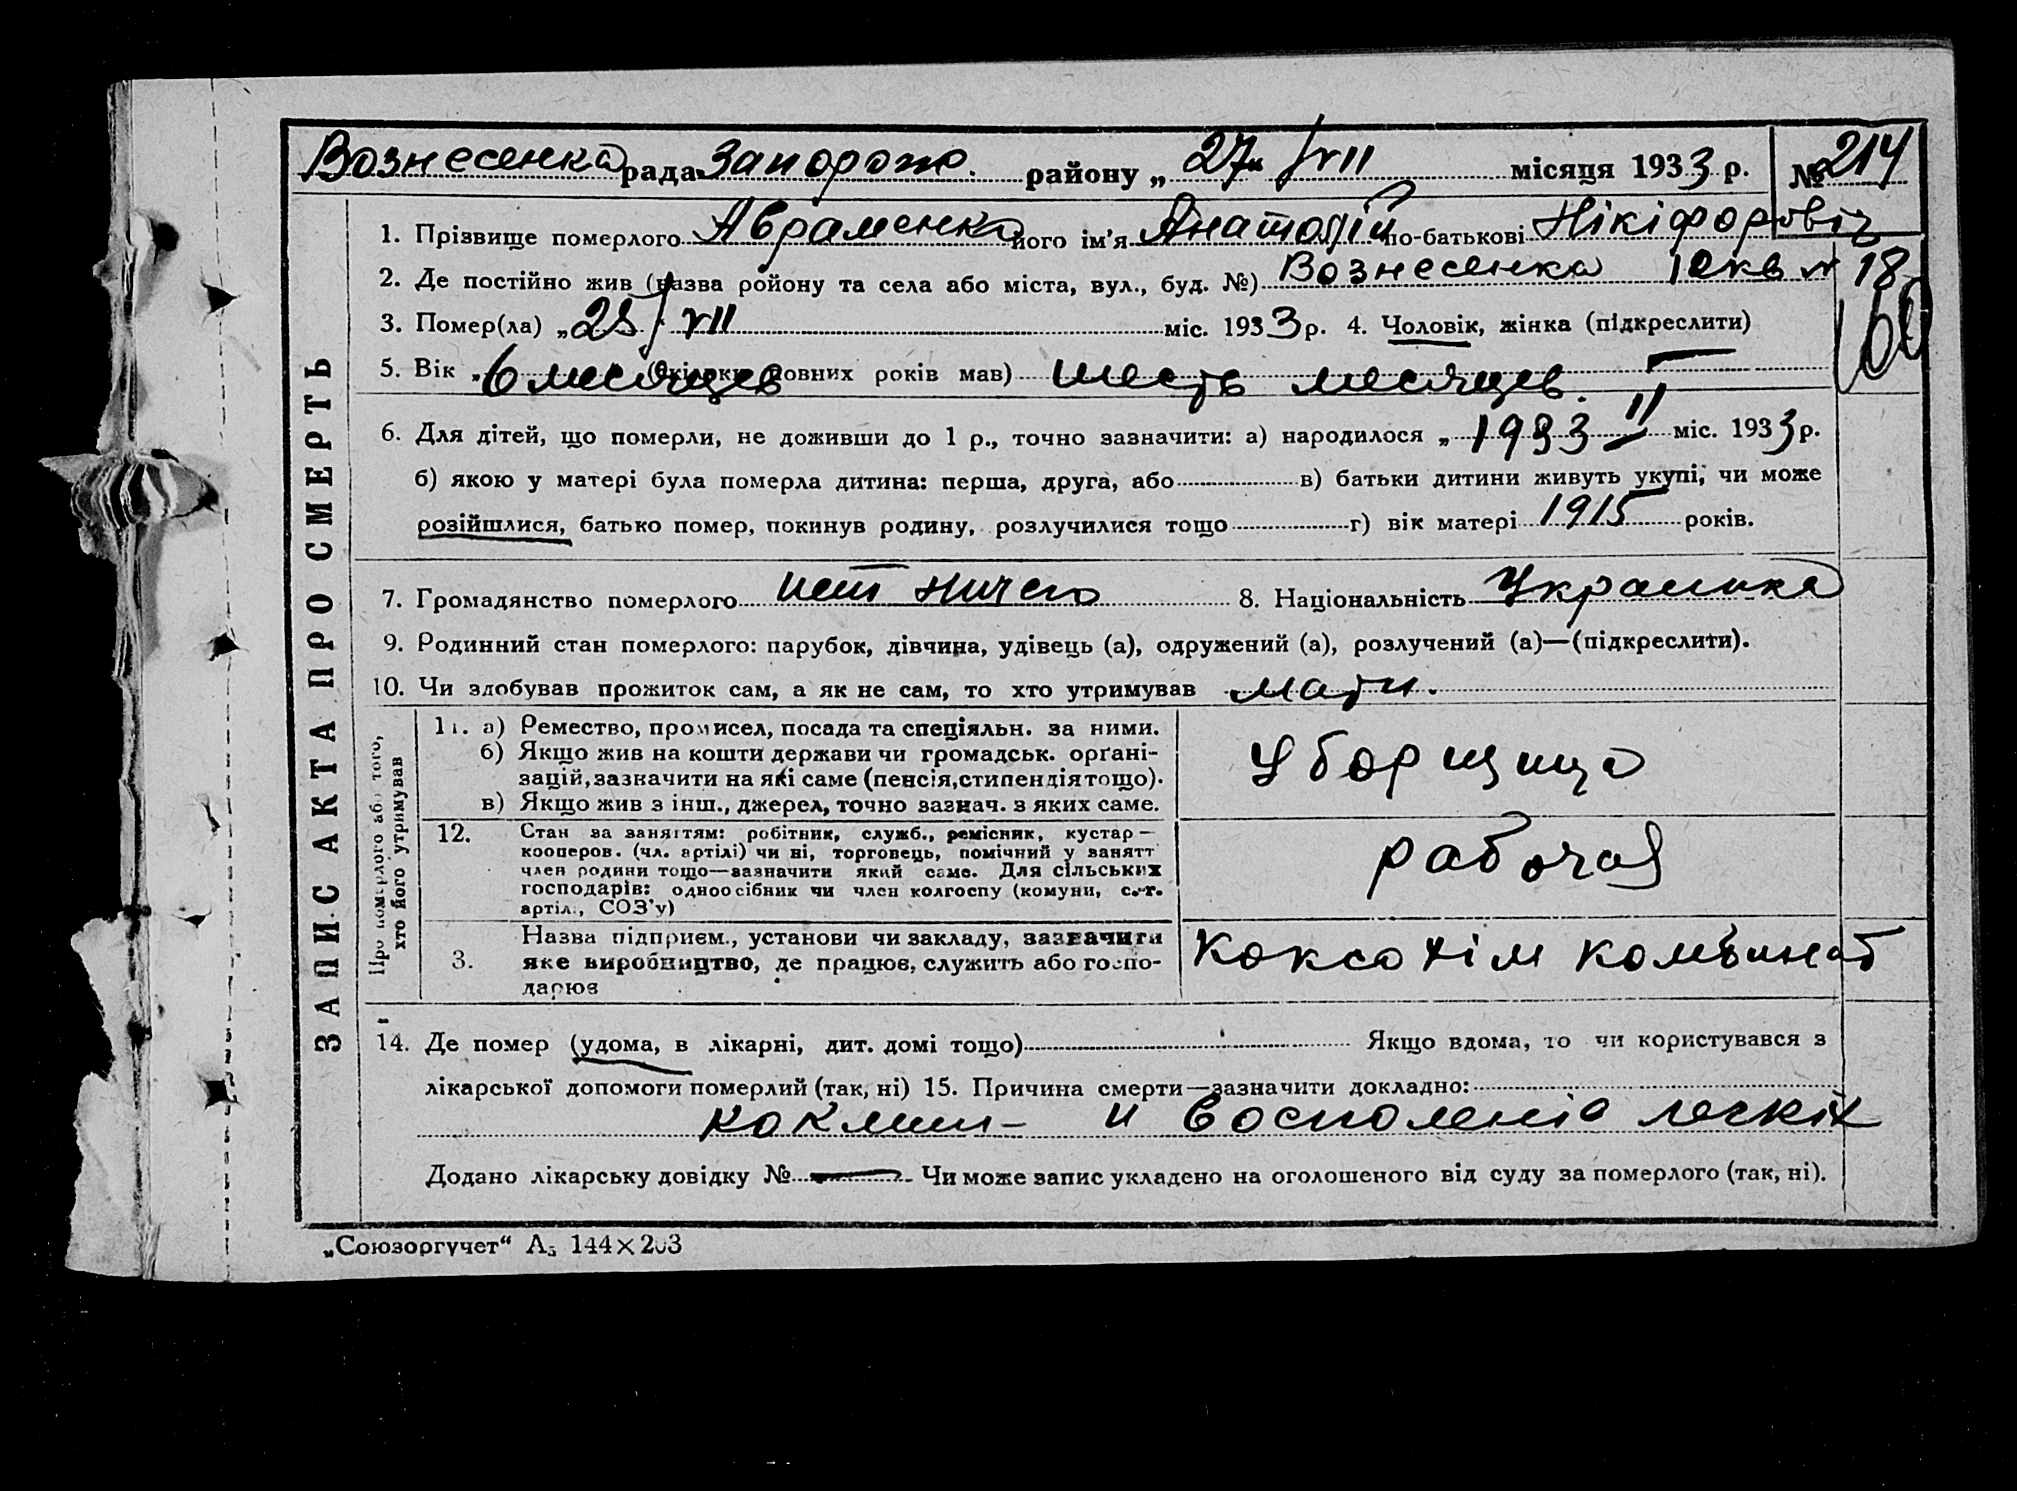 Вознесенка рада Запорожс. району „ 27 " / VII місяця 1933 р. № 214
1. Прізвище померлого Авраменко його ім'я Анатолій по-батькові Нікіфоровіч
2. Де постійно жив (назва ройону та села або міста, вул., буд. №) Вознесенка 10 кв № 18
3. Помер(ла) „ 25 / VII міс. 1933 р. 4. Чоловік, жінка (підкреслити) 60
5. Вік „ 6 месяцев (скільки повних років мав) шесть месяцев.
6. Для дітей, що померли, не доживши до 1 р., точно зазначити: а) народилося „ 1933 II міс. 1933 р.
б) якою у матері була померла дитина: перша, друга, або в) батьки дитини живуть укупі, чи може
розійшлися, батько помер, покинув родину, розлучилися тощо г) вік матері 1915 років.
7. Громадянство померлого нет ничего 8. Національність Украинка
9. Родинний стан померлого: парубок, дівчина, удівець (а), одружений (а), розлучений (а)—(підкреслити).
10. Чи здобував прожиток сам, а як не сам, то хто утримував мати.
ЗАПИС АКТА ПРО СМЕРТЬ
Про померлого або того,
хто його утримував
11. а) Ремество, промисел, посада та спеціяльн. за ними.
б) Якщо жив на кошти держави чи громадськ. орґані-
зацій, зазначити на які саме (пенсія, стипендія тощо).
в) Якщо жив з інш., джерел, точно зазнач. з яких саме.
Уборщица
12. Стан за заняттям: робітник, служб., ремісник, кустар—
кооперов. (чл. артілі) чи ні, торговець, помічний у занятт
член родини тощо—зазначити який саме. Для сільських
господарів: одноосібник чи член колгоспу (комуни, с.-г.
артіл., СОЗ'у)
рабочая
3. Назва підприєм., установи чи закладу, зазначити
яке виробництво, де працює, служить або госпо-
дарює
Коксохім комбинат
14. Де помер (удома, в лікарні, дит. домі тощо) Якщо вдома, то чи користувався з
лікарської допомоги померлий (так, ні) 15. Причина смерти—зазначити докладно:
коклюш - и восполеніа легкіх
Додано лікарську довідку № — Чи може запис укладено на оголошеного від суду за померлого (так, ні).
„Союзоргучет“ А5 144×203